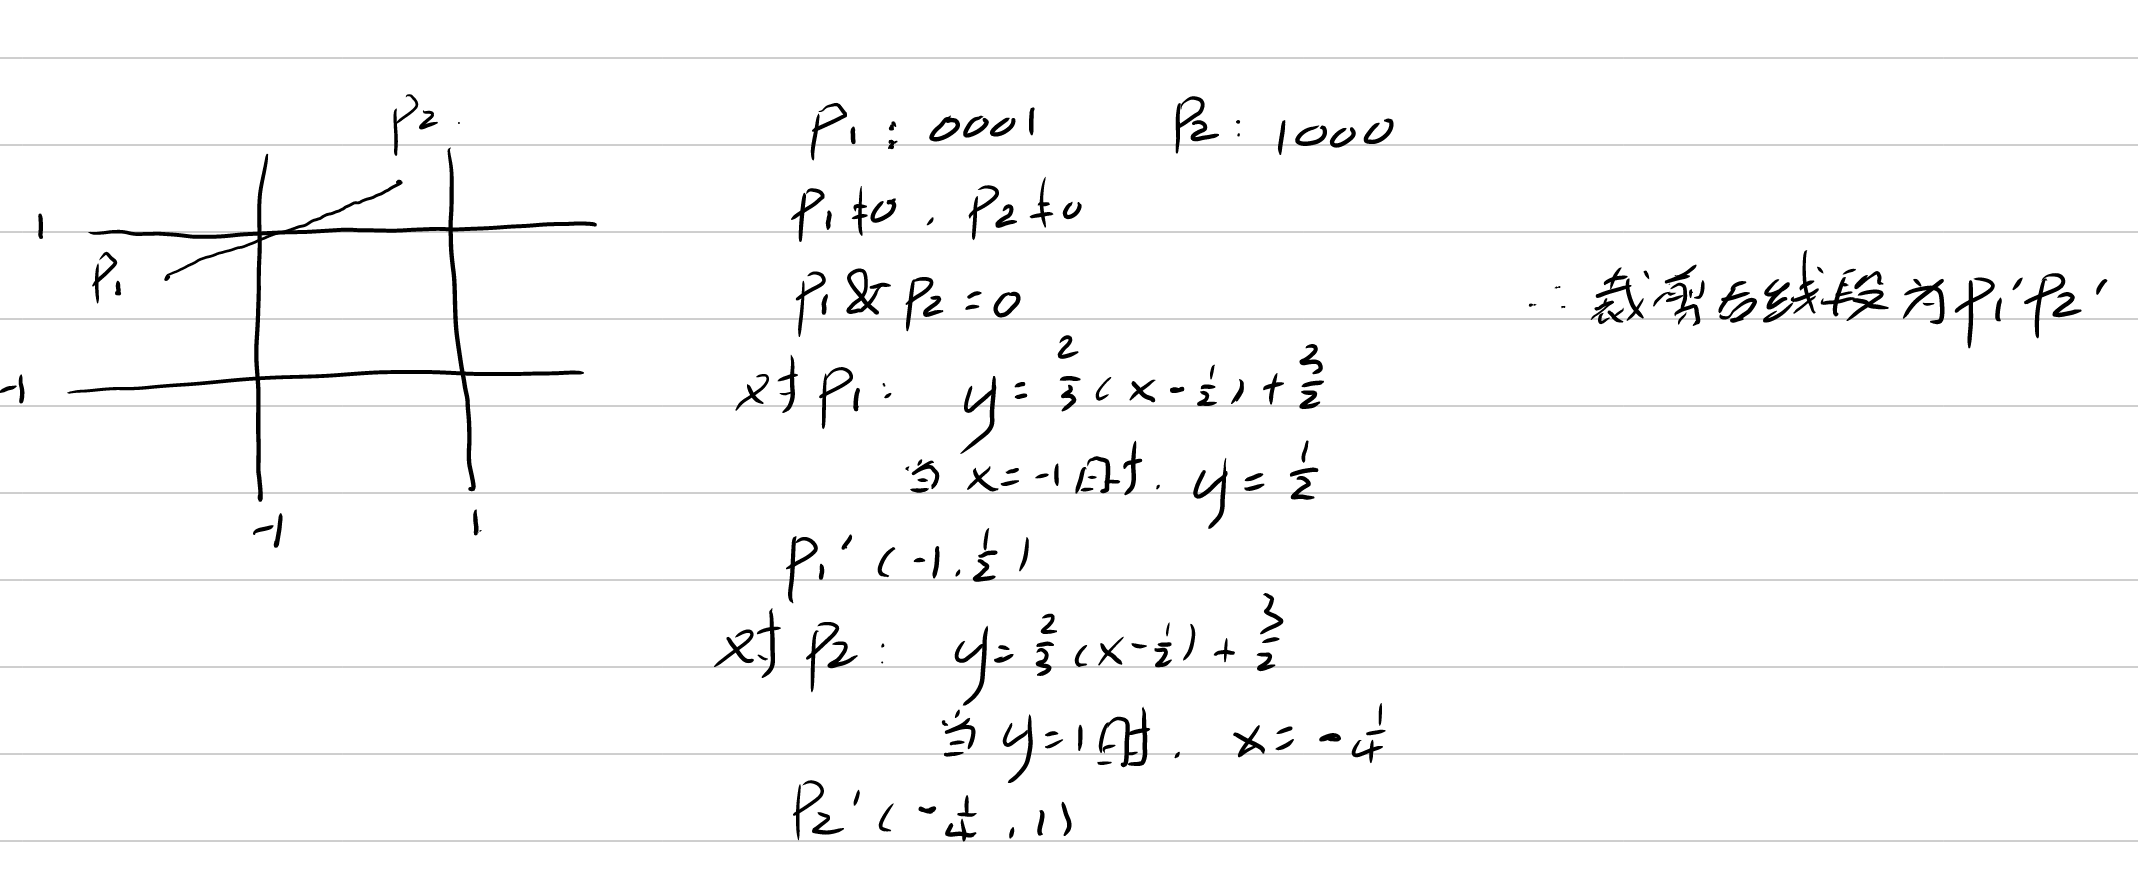 P2
1
P1
-1
-1
1
P1 : 0001 P2 : 1000
P1≠0 . P2≠0
P1 & P2 = 0
对P1: y = 2/3 (x - 1/2) + 3/2
当 x = -1 时. y = 1/2
P1' (-1, 1/2)
对 P2: y = 2/3 (x - 1/2) + 3/2
当 y = 1 时. x = - 1/4
P2' (- 1/4, 1)
∴ 裁剪后线段为P1'P2'